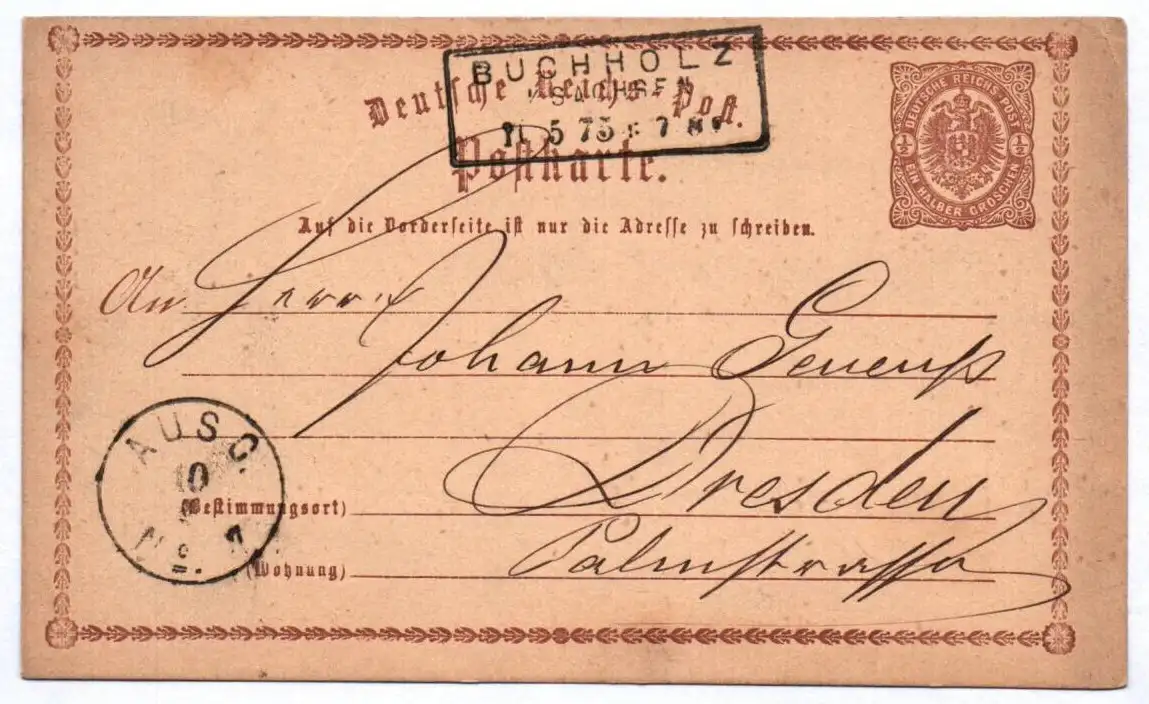 BUCHHOLZ
Deutsche Reichs-Post.
5 75
Postkarte.
DEUTSCHE REICHS-POST
½ ½
EIN HALBER GROSCHEN
Auf die Vorderseite ist nur die Adresse zu schreiben.
An Herrn
Johann
Dresden
(Bestimmungsort)
Palmstrasse
(Wohnung)
AUSG.
10
No. 7